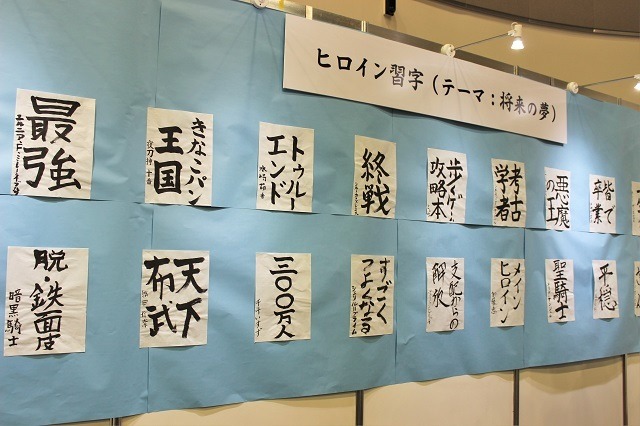 ヒロイン習字(テーマ:将来の夢)
最強
きなこパン
王国
夜刀神十香
トゥルー
エンド
終戦
攻略本
考古
学者
悪魔
の王
皆で
卒業
脱・鉄面皮
暗黒騎士
天下
布武
三〇〇万人
千斗いすず
すごく
つよくなる
支配からの
解放
メイン
ヒロイン
聖騎士
平穏